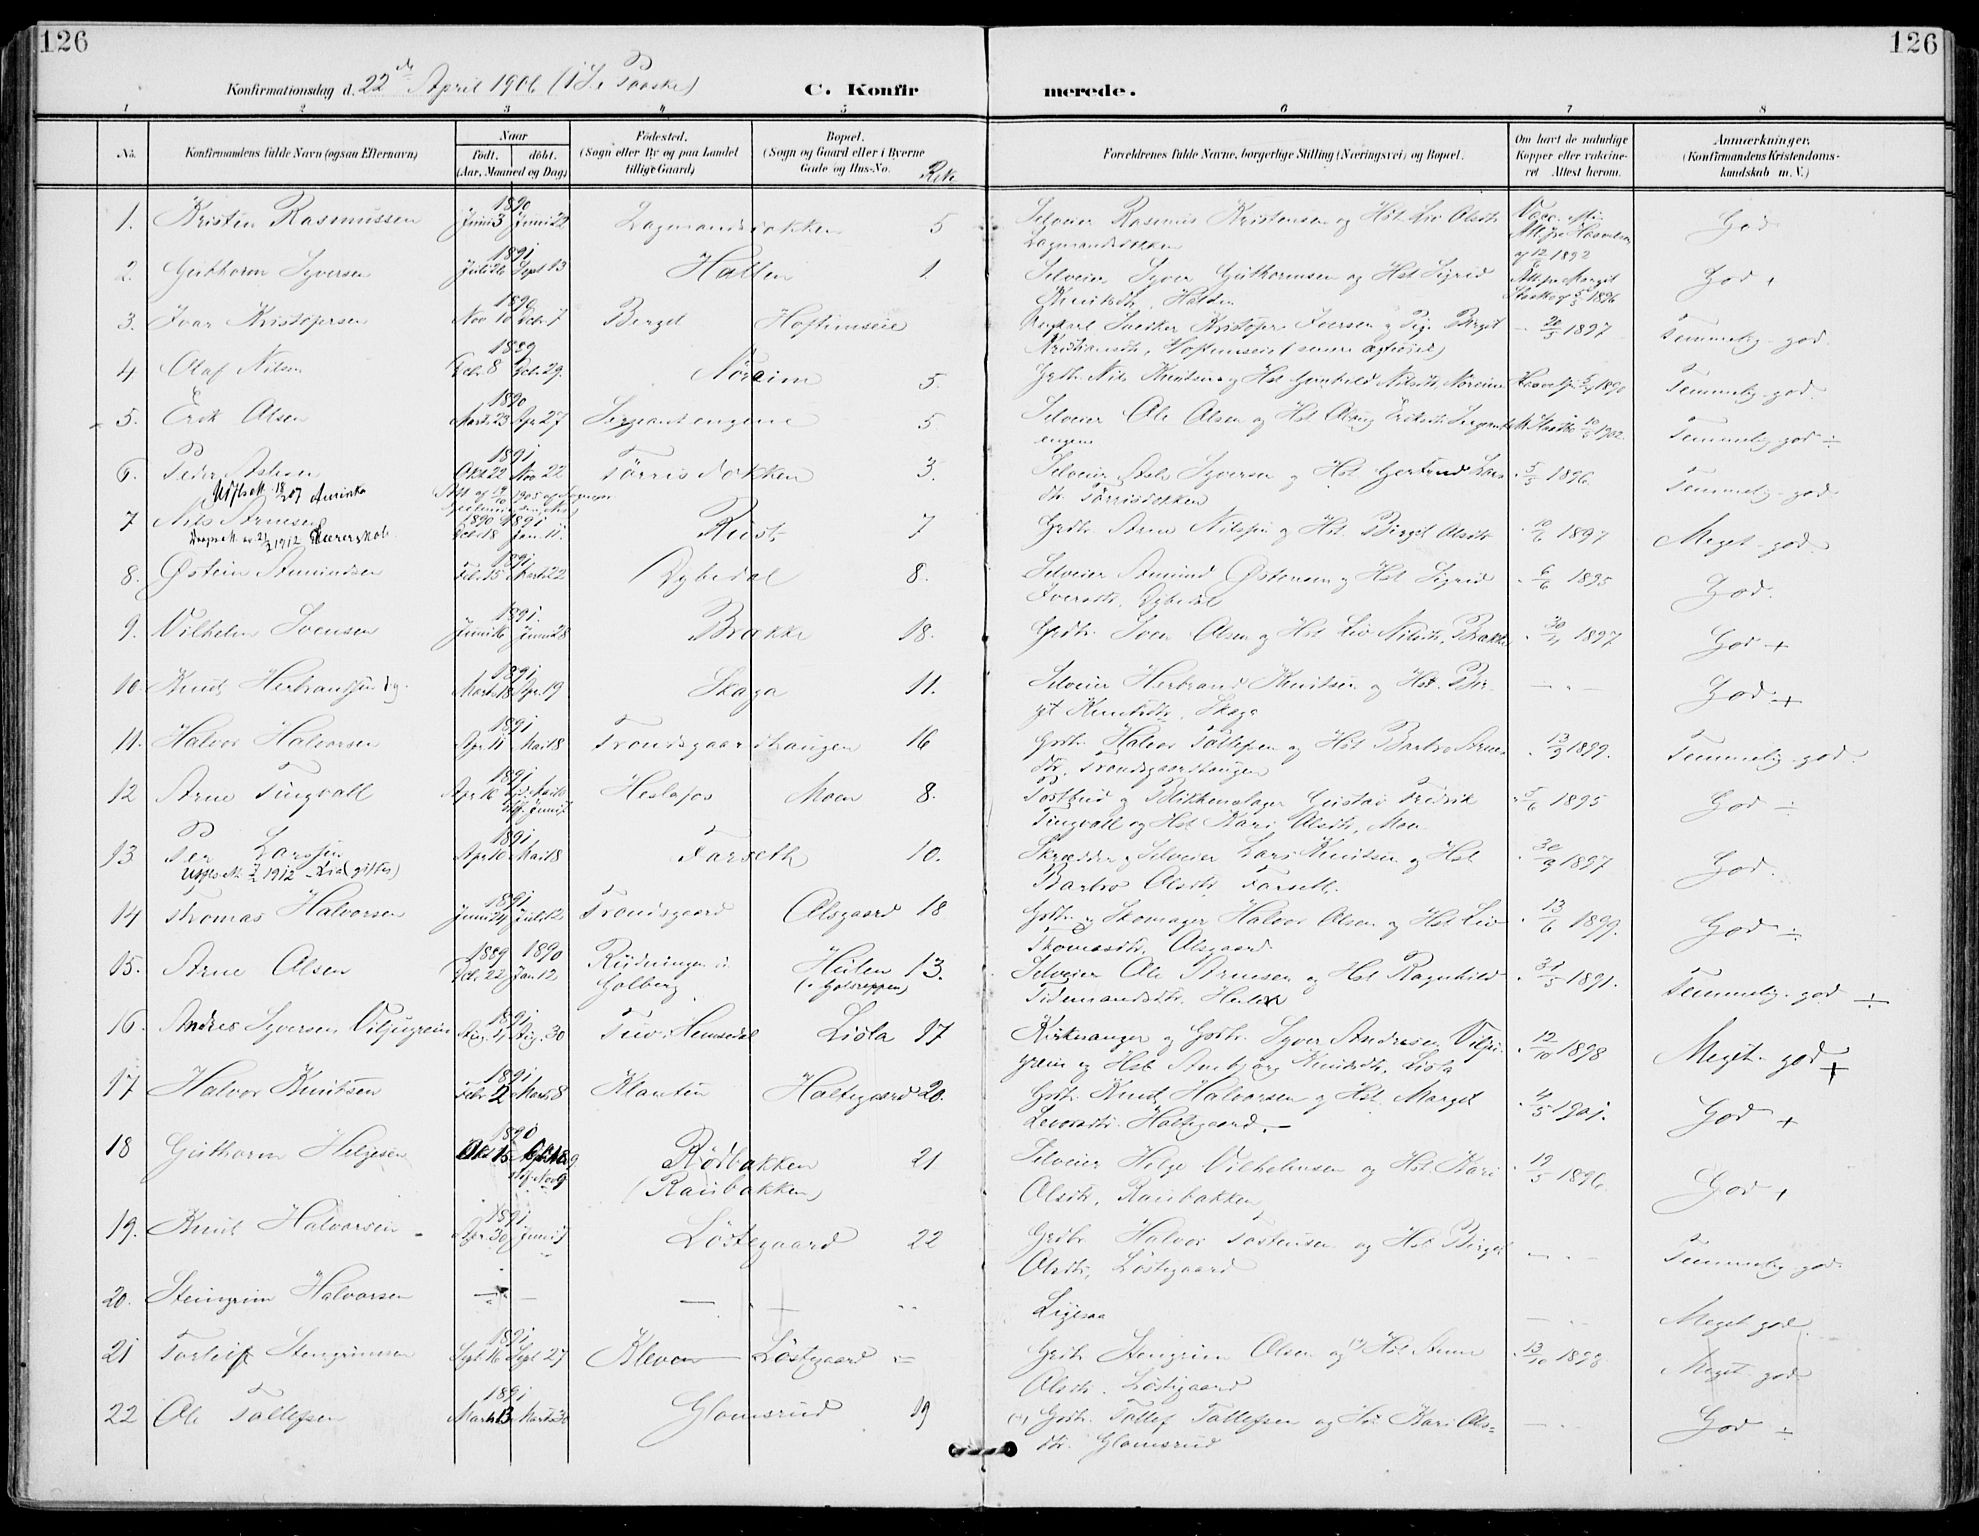 126
126
Konfirmationsdag d. 22de April 1906 (1 S. e Paaske)
C. Konfir
merede.
1 2 3 4 5 6 7 8
No.
Konfirmandens fulde Navn (ogsaa Efternavn)
Naar
født. døbt.
(Aar, Maaned og Dag)
Fødested.
(Sogn eller By og paa Landet
tillige Gaard)
Bopæl.
(Sogn og Gaard eller i Byerne
Gade og Hus-No.
Forældrenes fulde Navne, borgerlige Stilling (Næringsvei) og Bopæl.
Om havt de naturlige
Kopper eller vakcine-
ret Attest herom.
Anmærkninger.
(Konfirmandens Kristendoms-
kundskab m. V.)
1. Kristen Rasmussen 1890 Juni 3 Juni 22 Lagmandsdokken 5 Selveier Rasmus Kristensen og Hst. Liv Olsdtr
Lagmandsdokken God
2. Guthorm Syversen 1891 Juli 26 Sept 13 Halten 1. Selveier Syver Guthormsen og Hst Sigrid
Knutsdtr, Halten 1896 God +
3. Ivar Kristofersen 1890 Nov 10 Dcbr. 7 Berget Hoftunseie Snedker Kristofer Iversen og Pige Birgit
Kristiansdtr, Hoftunseie 20/5 1897 Temmelig god.
4 Olaf Nilsen 1889 Dcbr. 8 Dcbr. 29. Nøreim 5. Grdbr. Nils Knutsen og Hst Gunhild Nilsdtr Nøreim 1890 Temmelig god.
5. Erik Olsen 1890 Marts 23 Apr 27 Sergeantengene 5 Selveier Ole Olsen og Hst Aslaug Eriksdtr Sergeant
engene 1902. Temmelig god ÷
6. Peder Aslesen 1891 Okt 22 Nov 22 Tørrisdokken 3. Selveier Asle Syversen og Hst Gertrud Lars
dtr Tørrisdokken 5/5 1896. Temmelig god.
7 Nils Arnesen 1890 1891 Dcbr 18 Jan. 11. Rust 7 Grdbr. Arne Nilssen og Hst. Birgit Olsdtr 10/6 1897 Meget god.
8. Østein Amundsen 1891 Febr 15 Marts 22 Dybedal 8. Selveier Amund Østensen og Hst Sigrid
Iversdtr. Dybedal 6/6 1895 God.
9. Vilhelm Svensen 1891. Juni 16 Juni 28 Brække 18. Grdbr. Sven Olsen og Hst Liv Nilsdtr, Brække 1897 God +
10. Knut Herbrandsen 1891 Marts 18 Apr. 19 Skaga 11. Selveier Herbrand Knutsen og Hst. Bir
git Knutsdtr, Skaga God +
11. Halvor Halvorsen 1891 Apr 11 Mai 18 Trondsgaardhaugen 16 Grdbr. Halvor Tollefsen og Hst Barbro Arne
dtr, Trondsgaardhaugen 13/9 1899. Temmelig god.
12 Arne Tingvall 1891 Apr 16 Heslafos Moen 8. Postbud og Blikkenslager Gustav Fredrik
Tingvall og Hst Kari Olsdtr, Moen 5/6 1895 God ÷
13 Per Larssen 1891 Apr 10 Mai 18 Farseth 10. Skrædder og Selveier Lars Knutsen og Hst
Barbro Olsdtr Farseth. 30/9 1897 God.
14 Thomas Halvorsen 1891 Juni 24 Juli 12 Trondsgaard Olsgaard 18 Grdbr. og Skomager Halvor Olsen og Hst Liv
Thomasdtr. Olsgaard. 13/6 1899. God ÷
15. Arne Olsen 1889 1890 Dcb. 22 Jan 12 Rudningen i
Golberg Heilen 13. Selveier Ole Arnesen og Hst Ragnhild
Tidemandsdtr. Heilen 31/5 1891. Temmelig god ÷
16. Andres Syversen Viljugrein 1891 Aug. 30 Tuv Hemsedal Liola 17 Kirkesanger og Grdbr. Syver Andresen Vilju-
grein og Hst Ambjørg Knutsdtr, Liola 12/10 1898 Meget god +
17 Halvor Knutsen 1891 Febr 2 Marts 8 Klanten Haltegaard 20. Grdbr. Knut Halvorsen og Hst. Margit
Haltegaard. 1901. God +
18 Guthorm Helgesen 1890 Rødbakken
(Raubakken) 21 Selveier Helge Vilhelmsen og Hst. Kari
Olsdtr, Raubakken 19/5 1896. God +
19. Knut Halvorsen 1891 Apr. 30 Juni 7 Løstegaard 22 Grdbr Halvor Tostensen og Hst Birgit
Olsdtr, Løstegaard Temmelig god.
20. Steingrim Halvorsen — — — Ligesaa Meget god.
21 Torleif Stengrimsen 1891 Sept 16 Sept 27 Kleven Løstegaard Grdbr Stengrim Olsen og Hst Anne
Olsdtr. Løstegaard 13/10 1898 Meget god
22 Ole Tollefsen 1891 Marts 13 Glomsrud 19 Grdbr. Tollef Tollefsen og Hst Kari Ols=
dtr. Glomsrud God ÷